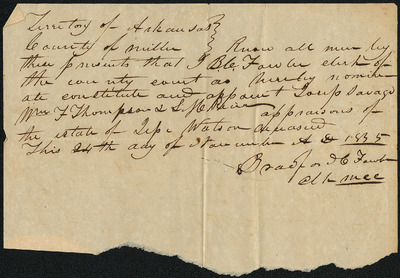 Territory of Arkansas
County of Miller } Know all men by
these presents that I B C Fowler clerk of
the county court do hereby nomin
ate constitute and appoint Joseph Savage
Wm F Thompson & L H appraisors of
the estate of Watson deceased
This 24th day of November A D 1835
Bradford C Fowler
clk mcc